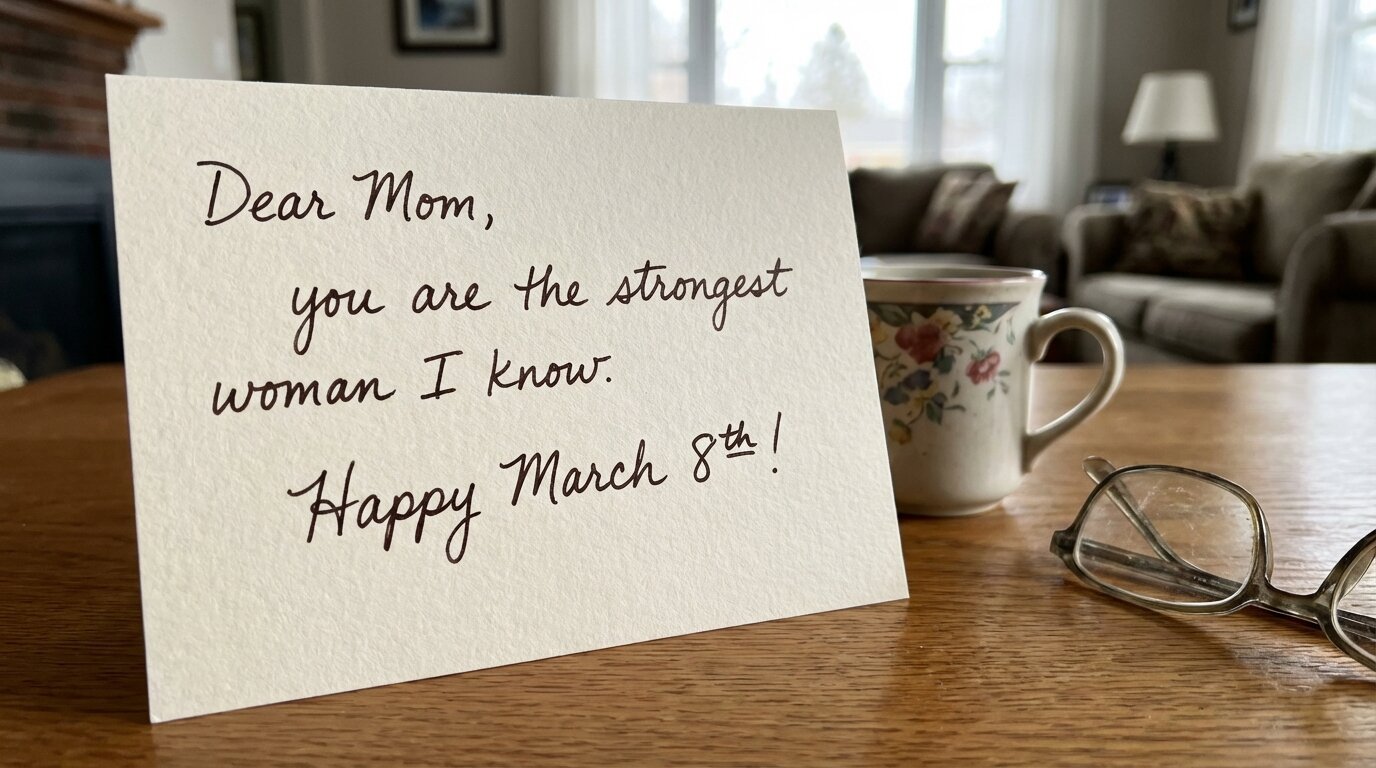 Dear Mom,
you are the strongest
woman I know.
Happy March 8th!